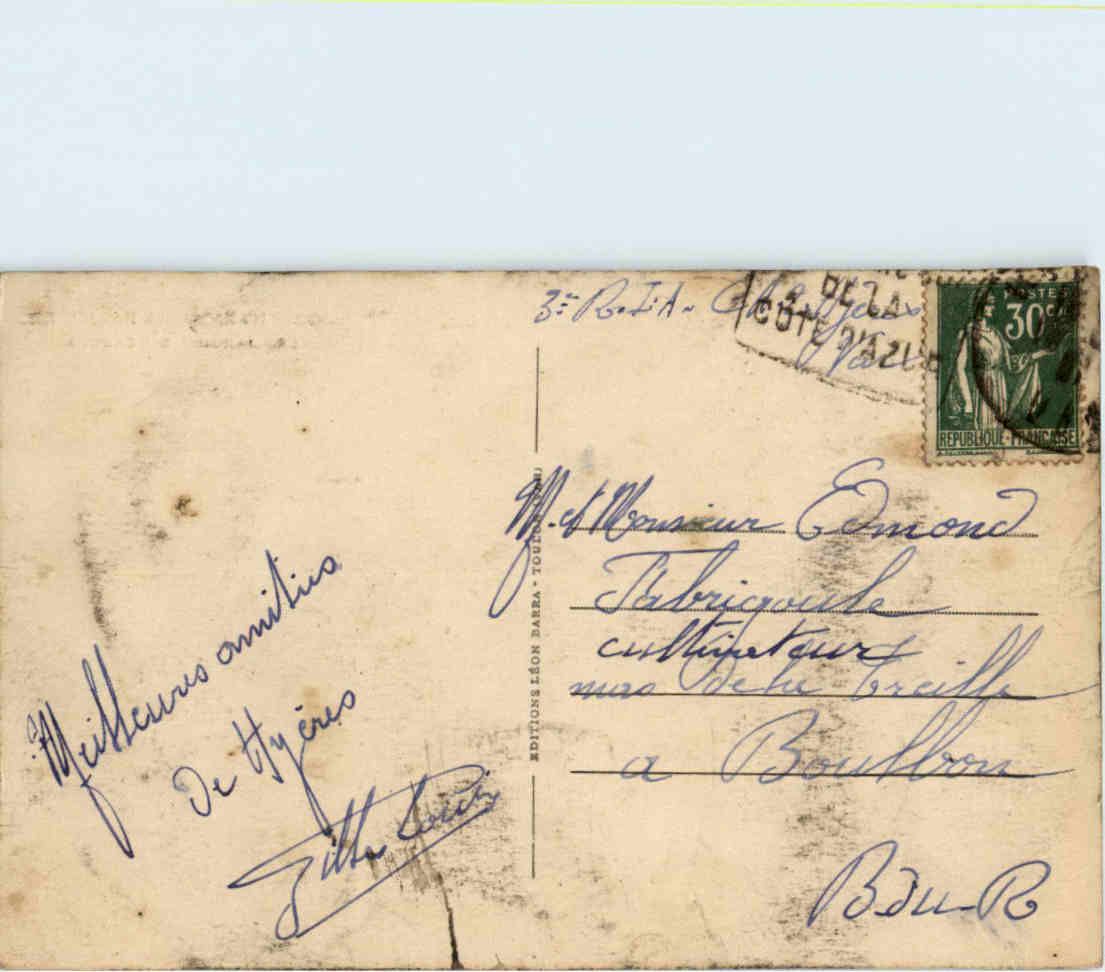 3e R.I.A. Hyères
Var
DE LA
COTE D'AZUR
POSTES
30c
REPUBLIQUE-FRANÇAISE
M. et Monsieur Edmond
Fabrigoule
cultivateurs
mas de la treille
a Boulbon
B.du-R
Meilleures amitiés
de Hyères
Louis
EDITIONS LÉON BARRA - TOULON